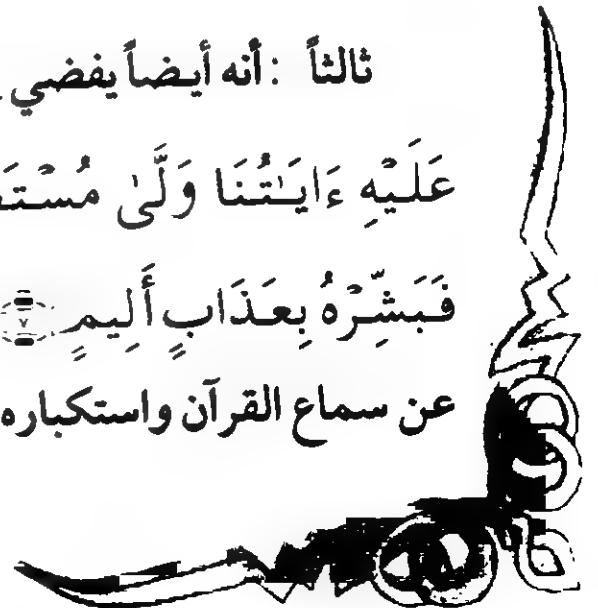 ثالثاً : أنه أيضاً يفضي
عَلَيْهِ ءَايَٰتُنَا وَلَّىٰ
فَبَشِّرْهُ بِعَذَابٍ أَلِيمٍ ٧
عن سماع القرآن واستكباره